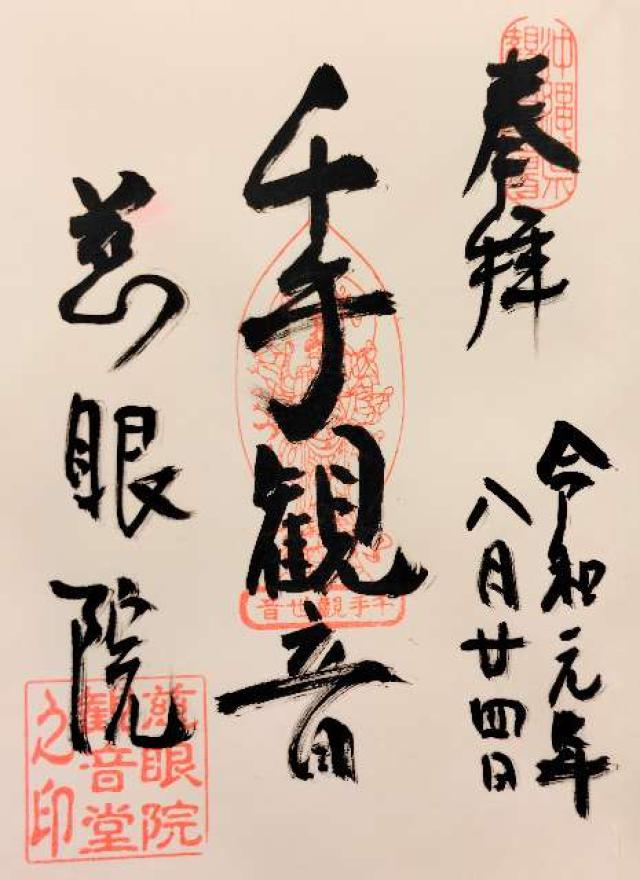 奉拝
令和元年
八月廿四日
千手観音
千手觀世音
慈眼院
慈眼院
観音堂
之印